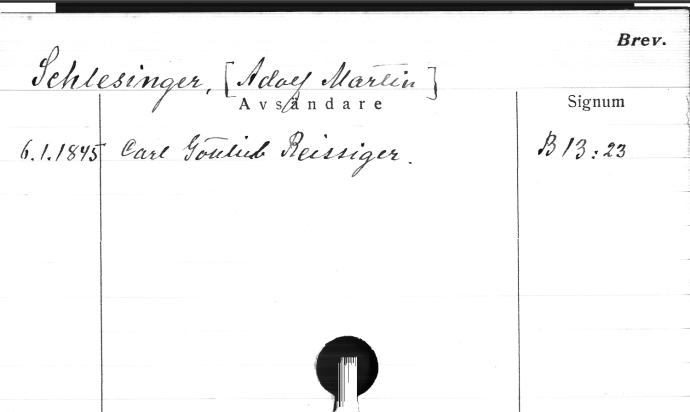 Brev.
Schlesinger, [Adolf Martin]
Avsändare
Signum
6.1.1845 Carl Gottlieb Reissiger. B 13:23